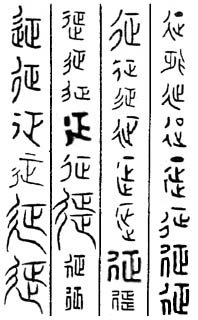 征征征征征征征征
征征征征征征征征
征征征征征征征征
征征征征征征